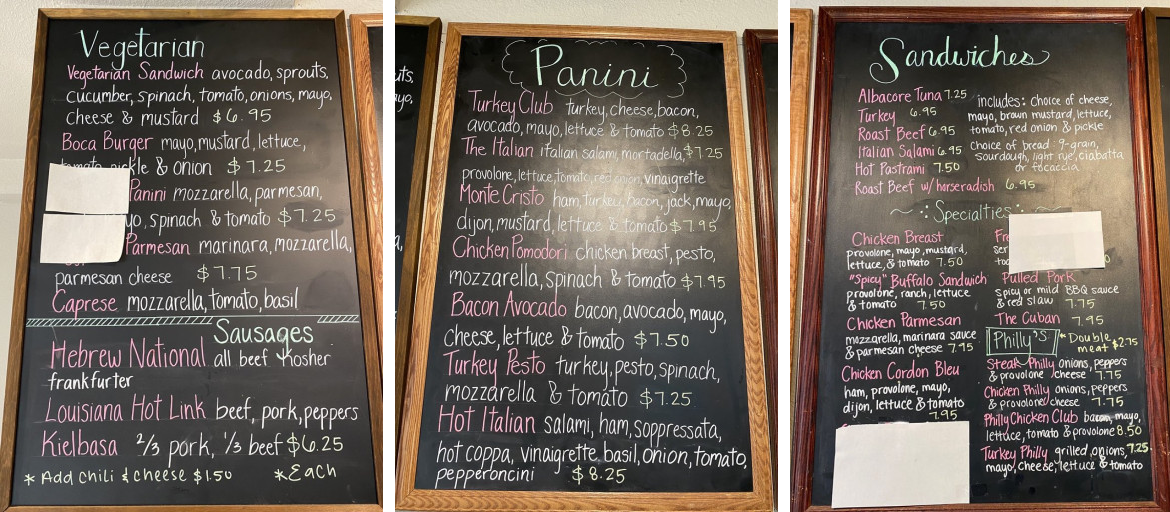 Vegetarian
Vegetarian Sandwich avocado, sprouts,
cucumber, spinach, tomato, onions, mayo,
cheese & mustard $6.95
Boca Burger mayo, mustard, lettuce,
tomato, pickle & onion $7.25
Panini mozzarella, parmesan,
spinach & tomato $7.25
Parmesan marinara, mozzarella,
parmesan cheese $7.75
Caprese mozzarella, tomato, basil
Sausages
Hebrew National all beef kosher
frankfurter
Louisiana Hot Link beef, pork, peppers
Kielbasa 2/3 pork, 1/3 beef $6.25
* Add chili & cheese $1.50 *Each
Panini
Turkey Club turkey, cheese, bacon,
avocado, mayo, lettuce & tomato $8.25
The Italian italian salami, mortadella, $7.25
provolone, lettuce, tomato, red onion, vinaigrette
Monte Cristo ham, turkey, bacon, jack, mayo,
dijon, mustard, lettuce & tomato $7.95
Chicken Pomodori chicken breast, pesto,
mozzarella, spinach & tomato $7.95
Bacon Avocado bacon, avocado, mayo,
cheese, lettuce & tomato $7.50
Turkey Pesto turkey, pesto, spinach,
mozzarella & tomato $7.25
Hot Italian salami, ham, soppressata,
hot coppa, vinaigrette, basil, onion, tomato,
pepperoncini $8.25
Sandwiches
Albacore Tuna 7.25
Turkey 6.95
Roast Beef 6.95
Italian Salami 6.95
Hot Pastrami 7.50
Roast Beef w/ horseradish 6.95
includes: choice of cheese,
mayo, brown mustard, lettuce,
tomato, red onion & pickle
choice of bread: 9-grain,
sourdough, light rye, ciabatta
or focaccia
Specialties
Chicken Breast
provolone, mayo, mustard,
lettuce, & tomato 7.50
"Spicy" Buffalo Sandwich
provolone, ranch, lettuce
& tomato 7.50
Chicken Parmesan
mozzarella, marinara sauce
& parmesan cheese 7.95
Chicken Cordon Bleu
ham, provolone, mayo,
dijon, lettuce & tomato
7.95
Pulled Pork
spicy or mild BBQ sauce
& red slaw 7.75
The Cuban 7.95
Philly's * Double
meat $2.75
Steak Philly onions, peppers
& provolone cheese 7.75
Chicken Philly onions, peppers
& provolone cheese 7.75
Philly Chicken Club bacon, mayo,
lettuce, tomato & provolone 8.50
Turkey Philly grilled onions, 7.25
mayo, cheese, lettuce & tomato